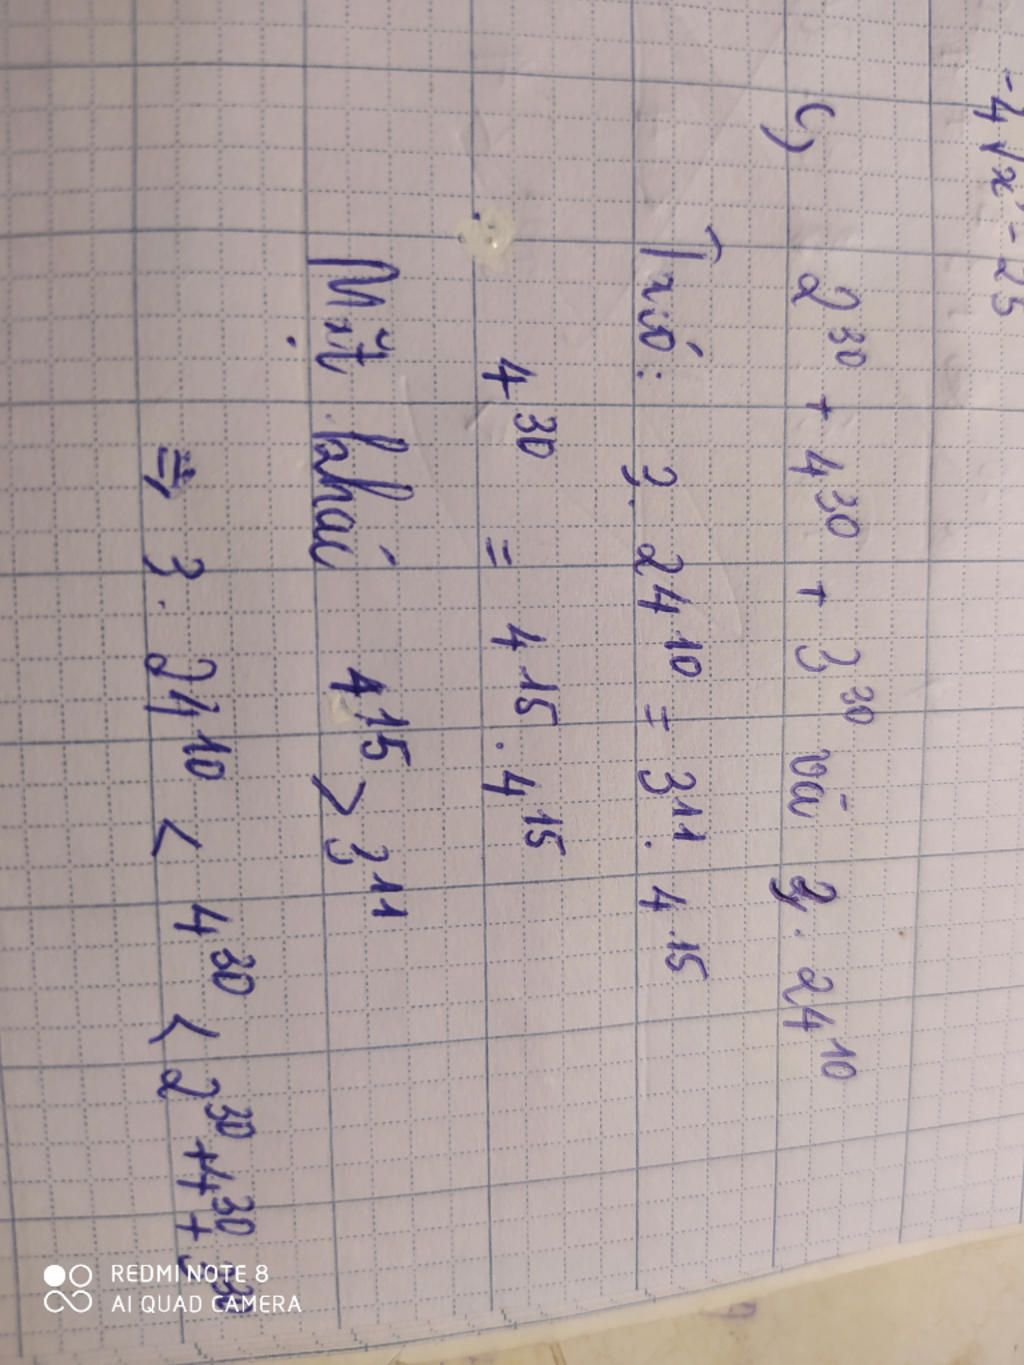 -4√x - 25
c) 2³⁰ + 4³⁰ + 3³⁰ và 3. 24¹⁰
Ta có: 3. 24¹⁰ = 3¹¹. 4¹⁵
4³⁰ = 4¹⁵ . 4¹⁵
Mặt khác 4¹⁵ > 3¹¹
⇒ 3. 24¹⁰ < 4³⁰ < 2³⁰ + 4³⁰ + 3³⁰
REDMI NOTE 8
AI QUAD CAMERA